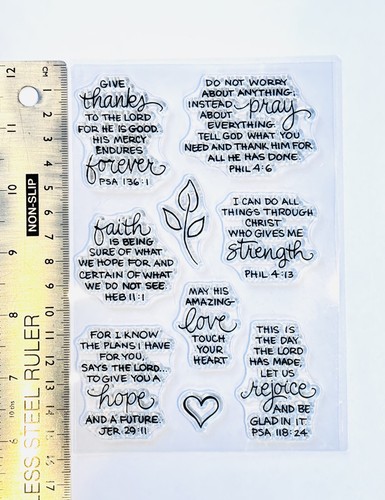 GIVE
thanks
TO THE LORD
FOR HE IS GOOD.
HIS MERCY
ENDURES
forever
PSA 136:1
DO NOT WORRY
ABOUT ANYTHING,
INSTEAD pray
ABOUT
EVERYTHING.
TELL GOD WHAT YOU
NEED AND THANK HIM FOR
ALL HE HAS DONE.
PHIL 4:6
faith
IS BEING
SURE OF WHAT
WE HOPE FOR AND
CERTAIN OF WHAT
WE DO NOT SEE.
HEB 11:1
I CAN DO ALL
THINGS THROUGH
CHRIST
WHO GIVES ME
strength
PHIL 4:13
MAY HIS
AMAZING
love
TOUCH
YOUR
HEART
FOR I KNOW
THE PLANS I HAVE
FOR YOU,
SAYS THE LORD...
TO GIVE YOU A
hope
AND A FUTURE.
JER. 29:11
THIS IS
THE DAY
THE LORD
HAS MADE,
LET US
rejoice
AND BE
GLAD IN IT.
PSA 118:24
12
11
10
9
8
7
6
CM
1
2
3
4
5
6
7
8
9
10
11
12
13
14
15
16
17
NON-SLIP
LESS STEEL RULER